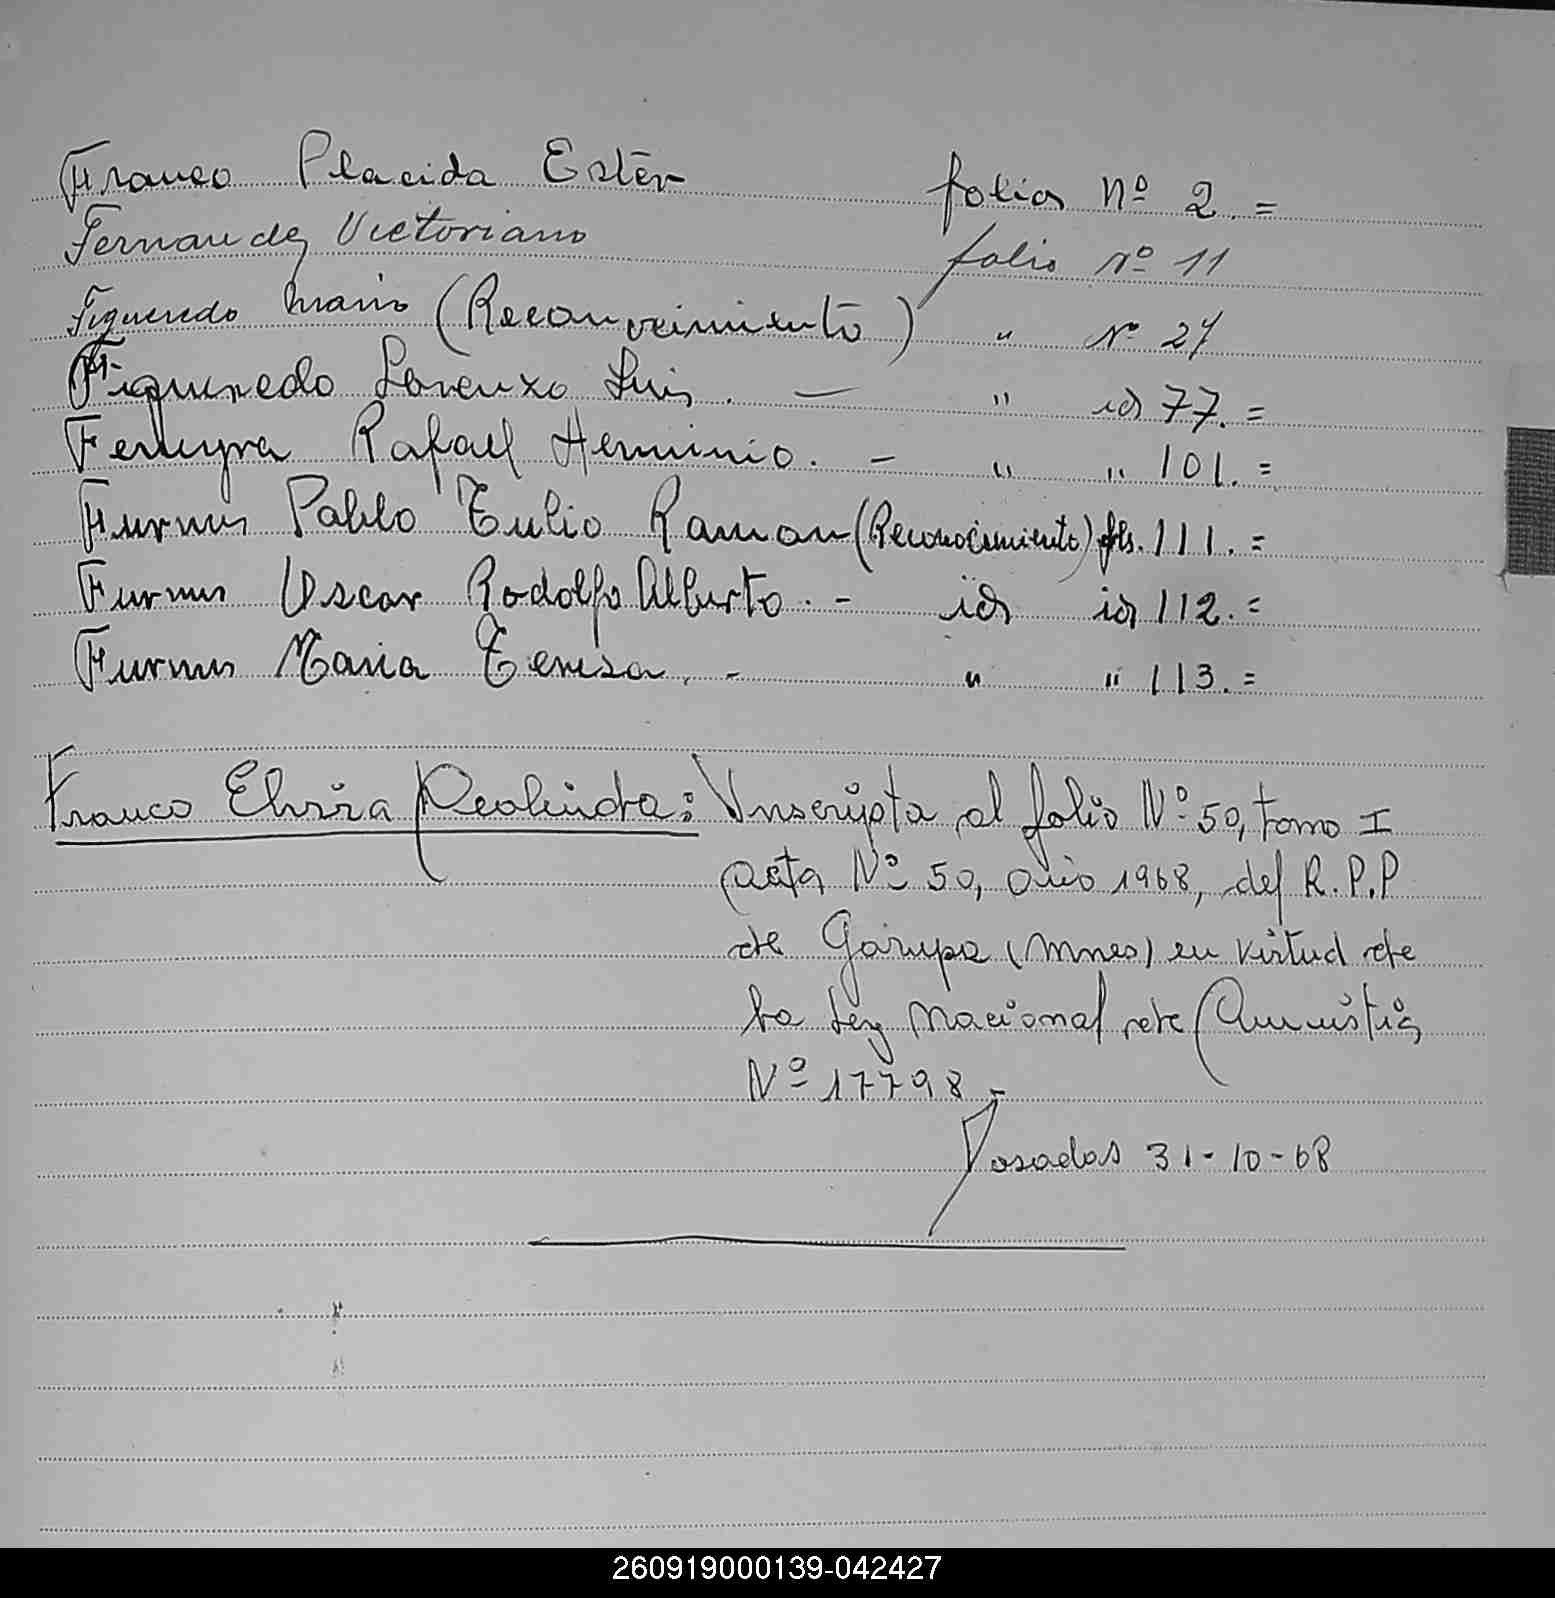 Franco Placida Estér folios Nº 2. =
Fernandez Victoriano folio Nº 11
Figueredo Mario (Reconocimiento) " Nº 27
Figueredo Lorenzo Luis. — " id 77. =
Ferreyra Rafael Herminio. - " " 101. =
Furnus Pablo Tulio Ramon (Reconocimiento) fls. 111. =
Furnus Oscar Rodolfo Alberto. - id id 112. =
Furnus Maria Teresa. - " " 113. =
Franco Elvira Deolinda: Inscripta al folio Nº 50, tomo I
acta Nº 50, año 1968, del R.P.P
de Garupa (Mnes) en virtud de
la Ley Nacional de Amnistia
Nº 17798.-
Posadas 31-10-68
260919000139-042427